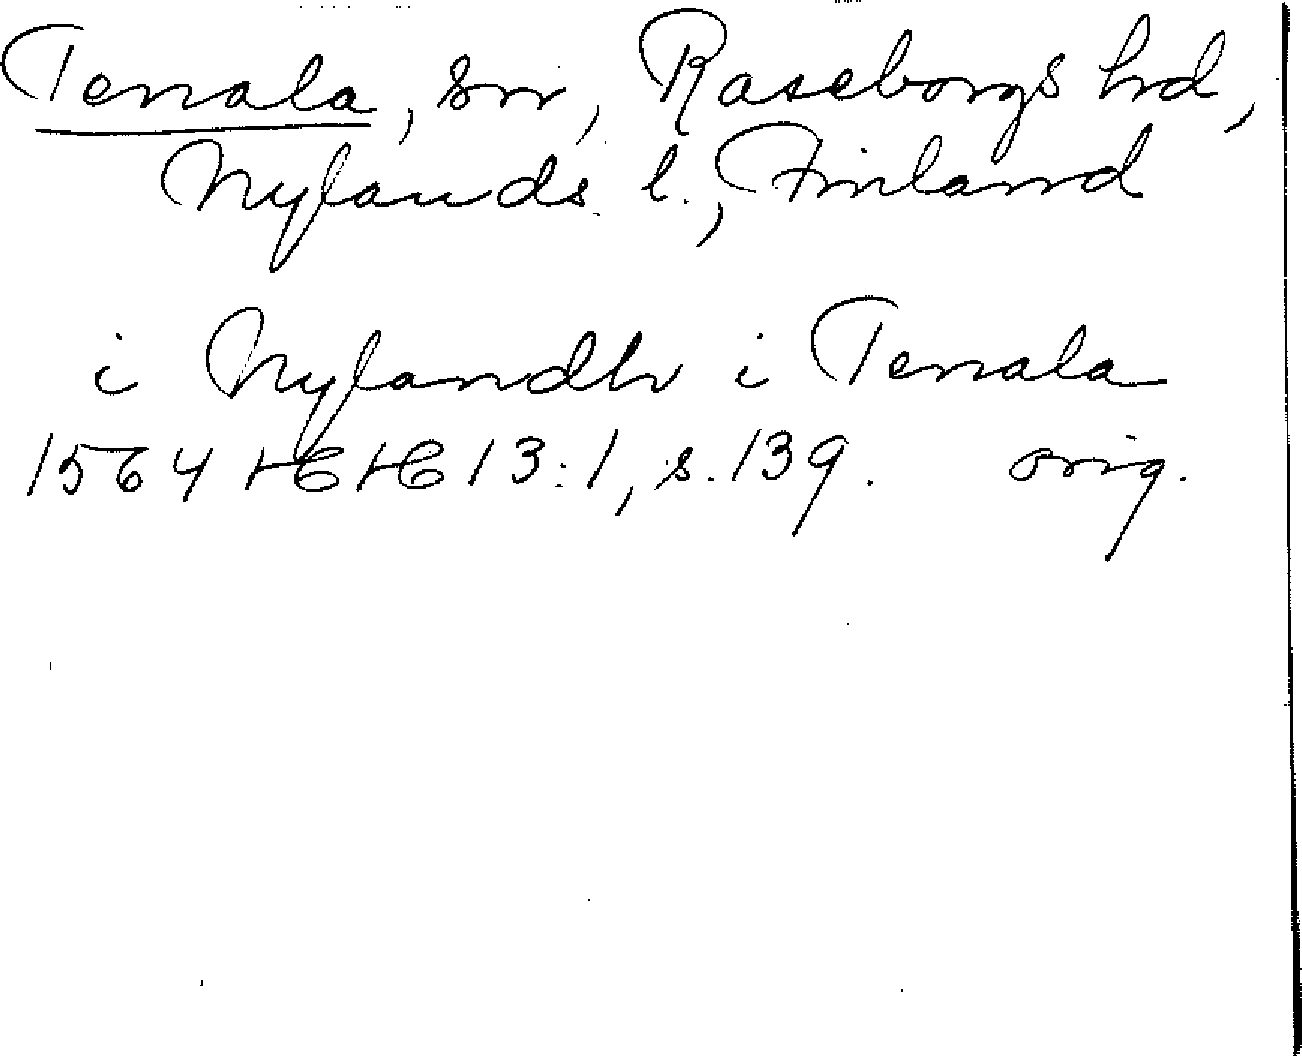 Tenala, sn, Raseborgs hd,
Nylands l., Finland
i Nylandh i Tenala
1564 HH 13:1, s. 139. orig.